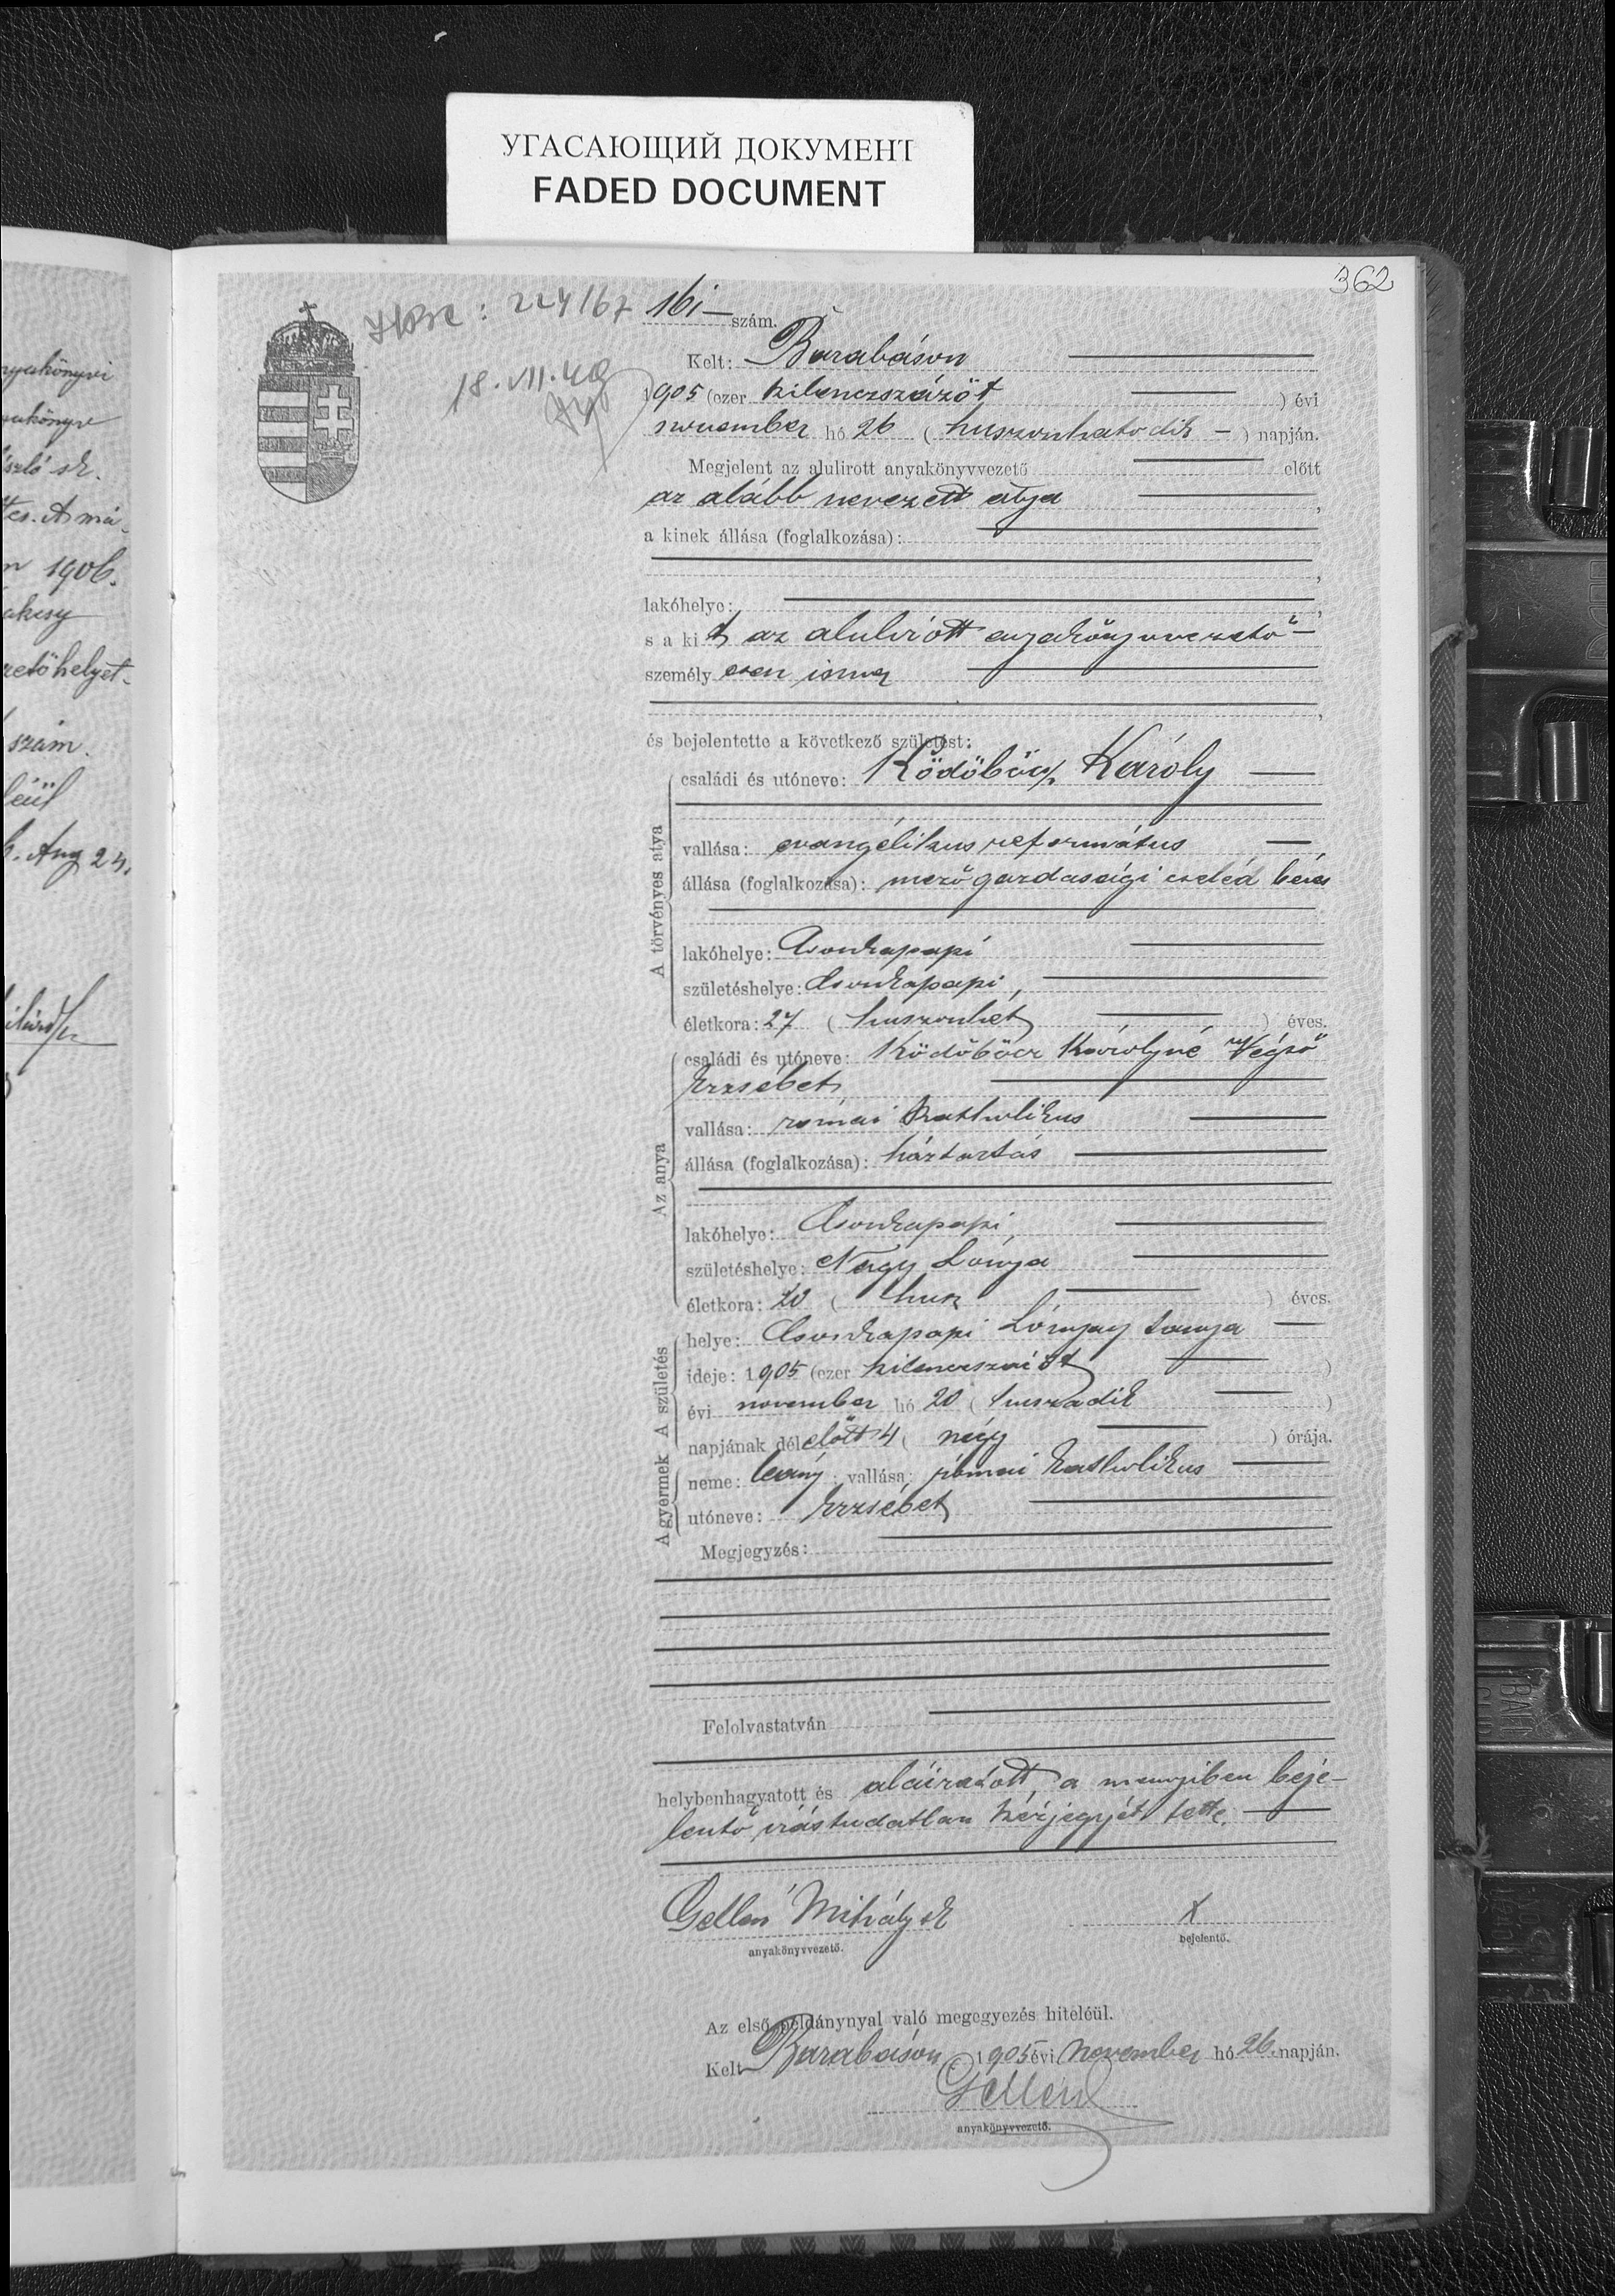 УГАСАЮЩИЙ ДОКУМЕНТ
FADED DOCUMENT
362
224/67
18. VII. 49
161 — szám.
Kelt: Barabáson
1905 (ezer kilenczszázöt ) évi
november hó 26 ( huszonhatodik — ) napján.
Megjelent az alulirott anyakönyvvezető előtt
az alább nevezett atya ,
a kinek állása (foglalkozása):
,
lakóhelye: ,
s a kit az alulirott anyakönyvvezető —
személyesen ismer
,
és bejelentette a következő születést:
A törvényes atya
családi és utóneve: Ködöböcz Károly
vallása: evangélikus református
állása (foglalkozása): mezőgazdasági cseléd béres
lakóhelye: Csonkapapi
születéshelye: Csonkapapi,
életkora: 27 ( huszonhét ) éves.
Az anya
családi és utóneve: Ködöböcz Károlyné Végső
Erzsébet
vallása: római katholikus
állása (foglalkozása): háztartás
lakóhelye: Csonkapapi,
születéshelye: Nagy Lónya
életkora: 20 ( husz ) éves.
A születés
helye: Csonkapapi Lónyay tanya
ideje: 1905 (ezer kilenczszázöt )
évi november hó 20 ( huszadik )
napjának délelőtt 4 ( négy ) órája.
A gyermek
neme: leány; vallása: római katholikus
utóneve: Erzsébet
Megjegyzés:
Felolvastatván
helybenhagyatott és aláiratott, a mennyiben beje-
lentő irástudatlan kézjegyét tette.
Gellén Mihály sk
anyakönyvvezető.
x
bejelentő.
Az első példánynyal való megegyezés hiteléül.
Kelt Barabáson, 1905 évi November hó 26. napján.
Gellén
anyakönyvvezető.
szló sk.
n 1906.
szám.
Aug 24.